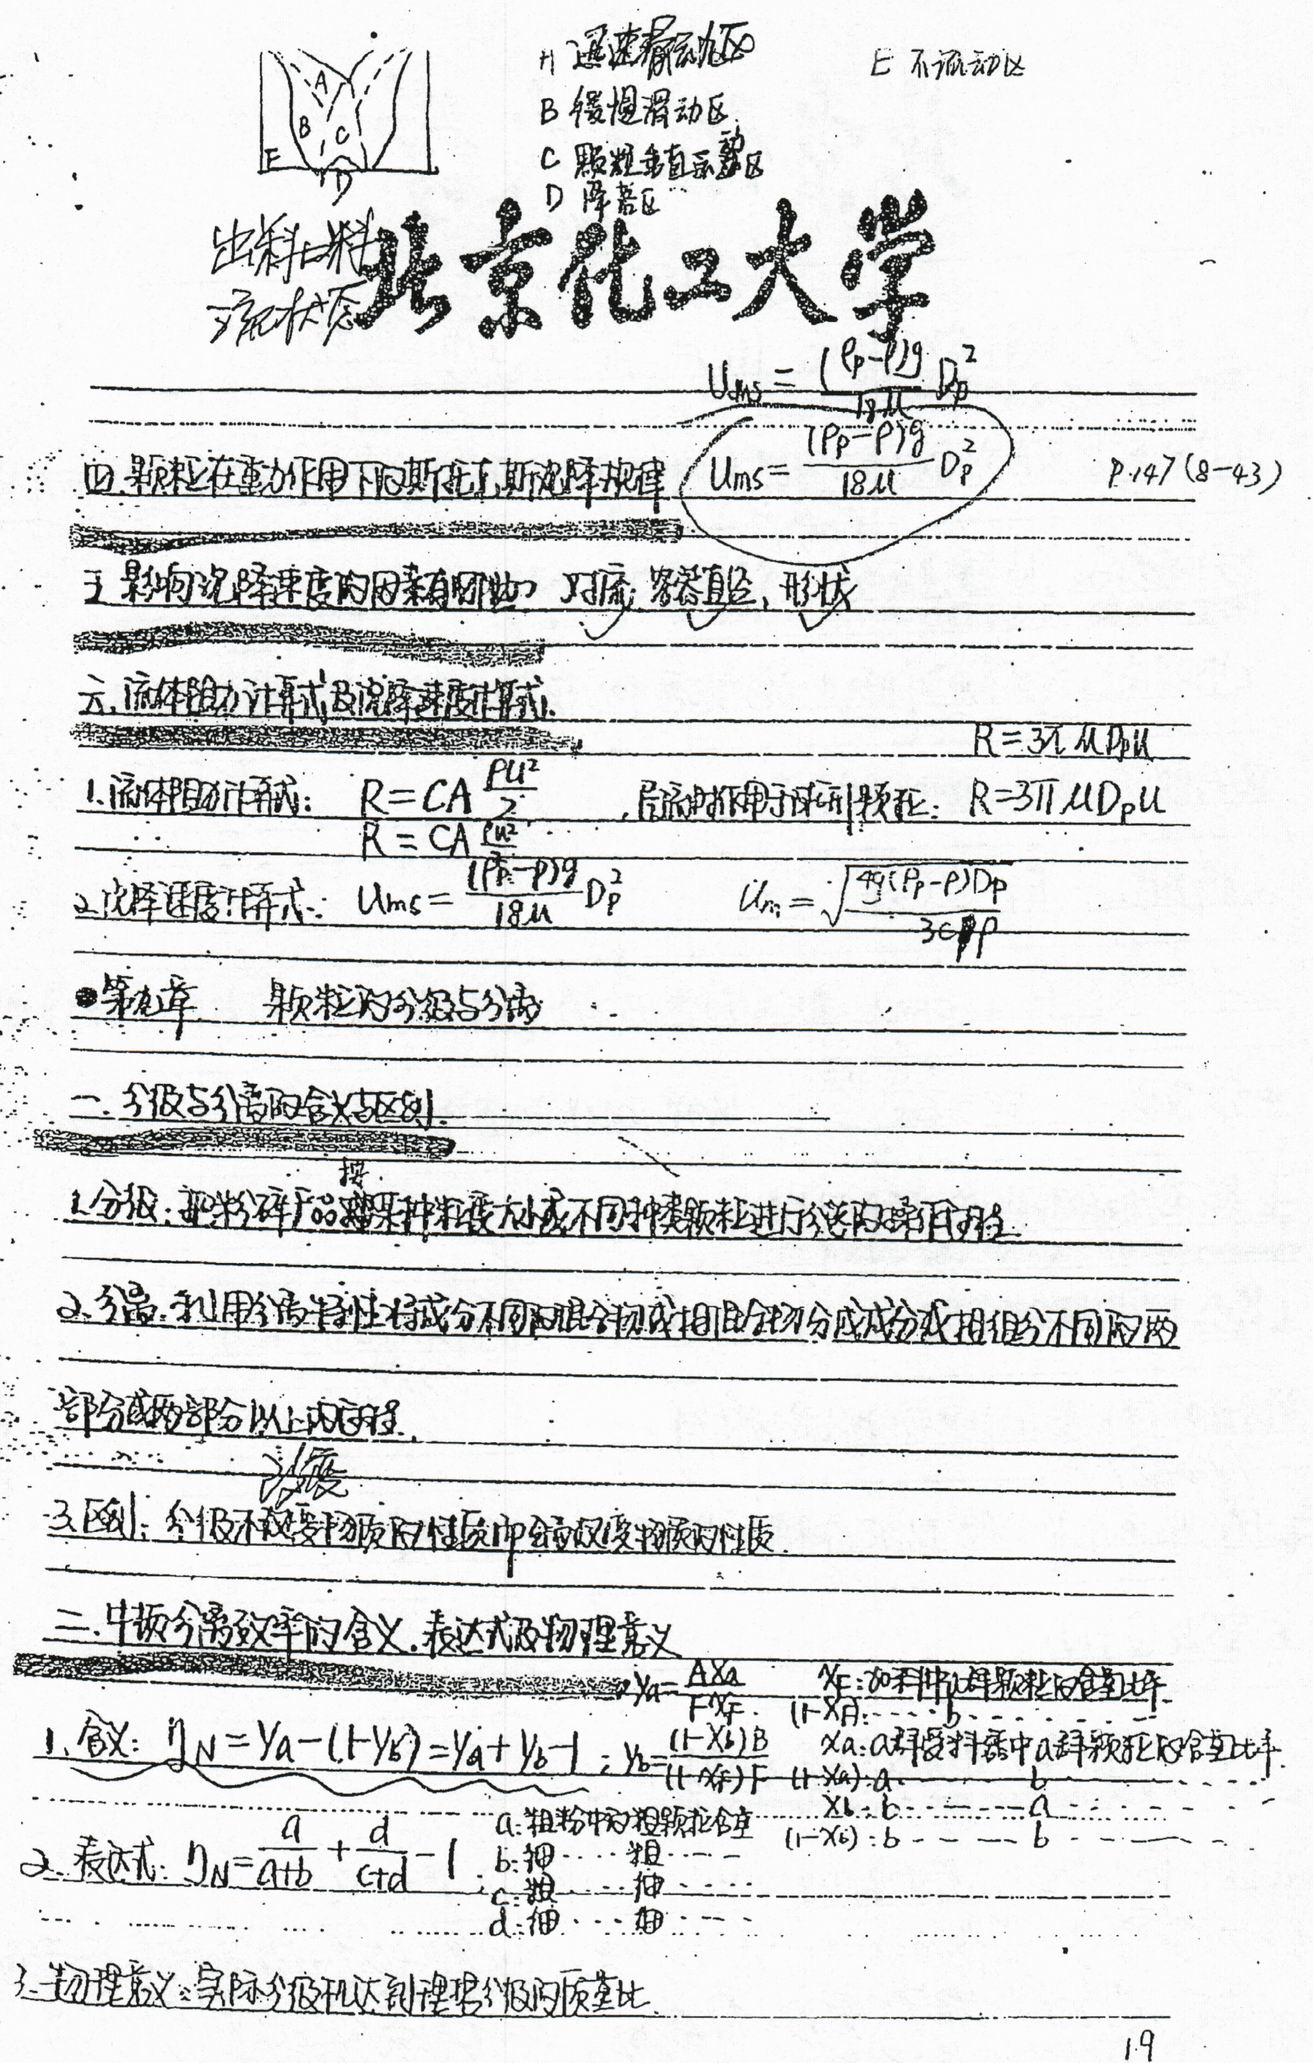 A 迅速滑动区
E 不流动区
B 缓慢滑动区
C 颗粒垂直运动区
D 降落区
A
B C
E
D
出料口料
流状态
北京化工大学
Ums = (ρp-ρ)g/18μ Dp²
四.颗粒在重力作用下的斯托克斯沉降规律 Ums = (ρp-ρ)g/18μ Dp² P.147(8-43)
五.影响沉降速度的因素有哪些? 对流, 容器直径, 形状
六.流体阻力计算式及沉降速度计算式.
R=3π μDpu
1.流体阻力计算式: R=CA ρu²/2, 层流时作用于球形颗粒: R=3π μDpu
R=CA ρu²/2
2.沉降速度计算式: Ums = (ρp-ρ)g/18μ Dp² Um = √(4g(ρp-ρ)Dp/3cρ)
第九章 颗粒的分级与分离
一.分级与分离的含义与区别.
按
1.分级: 把粉碎产品按某种粒度大小或不同种类颗粒进行分选的操作过程.
2.分离: 利用分离特性将成分不同的混合物或相混合物分成成分或相组分不同的两
部分或两部分以上的过程.
改变
3.区别: 分级不改变物质的性质而分离改变物质的性质.
二.牛顿分离效率的含义.表达式及物理意义
Ya = AXa/FXF XF:原料中a种颗粒的含量比率.
(1-XF): - - - b - - -
1.含义: ηN = Ya-(1-Yb) = Ya+Yb-1 ; Yb = (1-Xb)B/(1-XF)F Xa:a种受料器中a种颗粒的含量比率.
(1-Xa):a - - - b - - -
Xb:b - - - a - - -
(1-Xb):b - - - b - - -
2.表达式: ηN = a/(a+b) + d/(c+d) - 1
a:粗粉中的粗颗粒含量
b:细 ···· 粗 ····
c:粗 ···· 细 ····
d:细 ···· 细 ····
3.物理意义: 实际分级机达到理想分级的质量比.
19